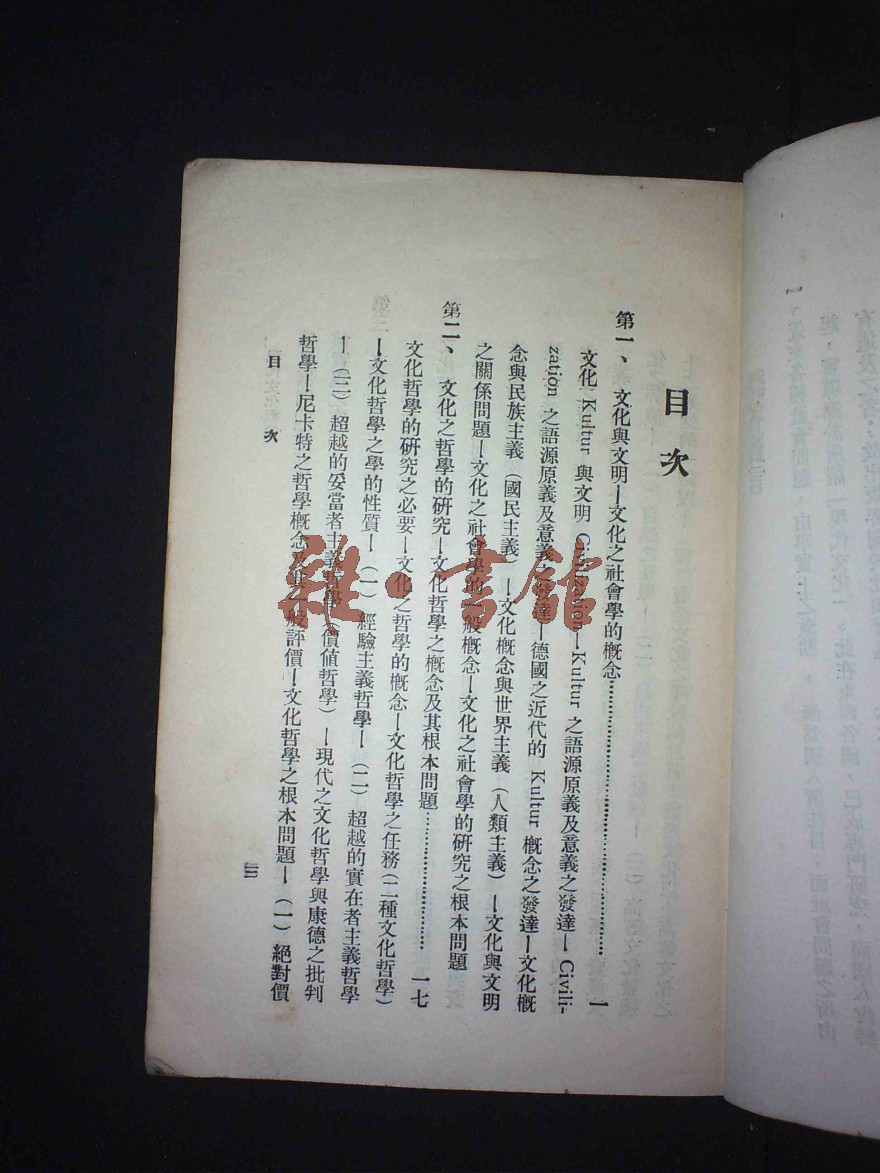 目次
第一、文化與文明—文化之社會學的概念……………………一
文化 Kultur 與文明 Civilization—Kultur 之語源原義及意義之發達—Civili-
zation 之語源原義及意義之發達—德國之近代的 Kultur 概念之發達—文化概
念與民族主義（國民主義）—文化概念與世界主義（人類主義）—文化與文明
之關係問題—文化之社會學的一般概念—文化之社會學的研究之根本問題
第二、文化之哲學的研究—文化哲學之概念及其根本問題……………………一七
文化哲學的研究之必要—文化之哲學的概念—文化哲學之任務（二種文化哲學）
—文化哲學之學的性質—（一）經驗主義哲學—（二）超越的實在者主義哲學
—（三）超越的妥當者主義哲學（價值哲學）—現代之文化哲學與康德之批判
哲學—尼卡特之哲學概念及其一般評價—文化哲學之根本問題—（一）絕對價
目次
三
雜·書館